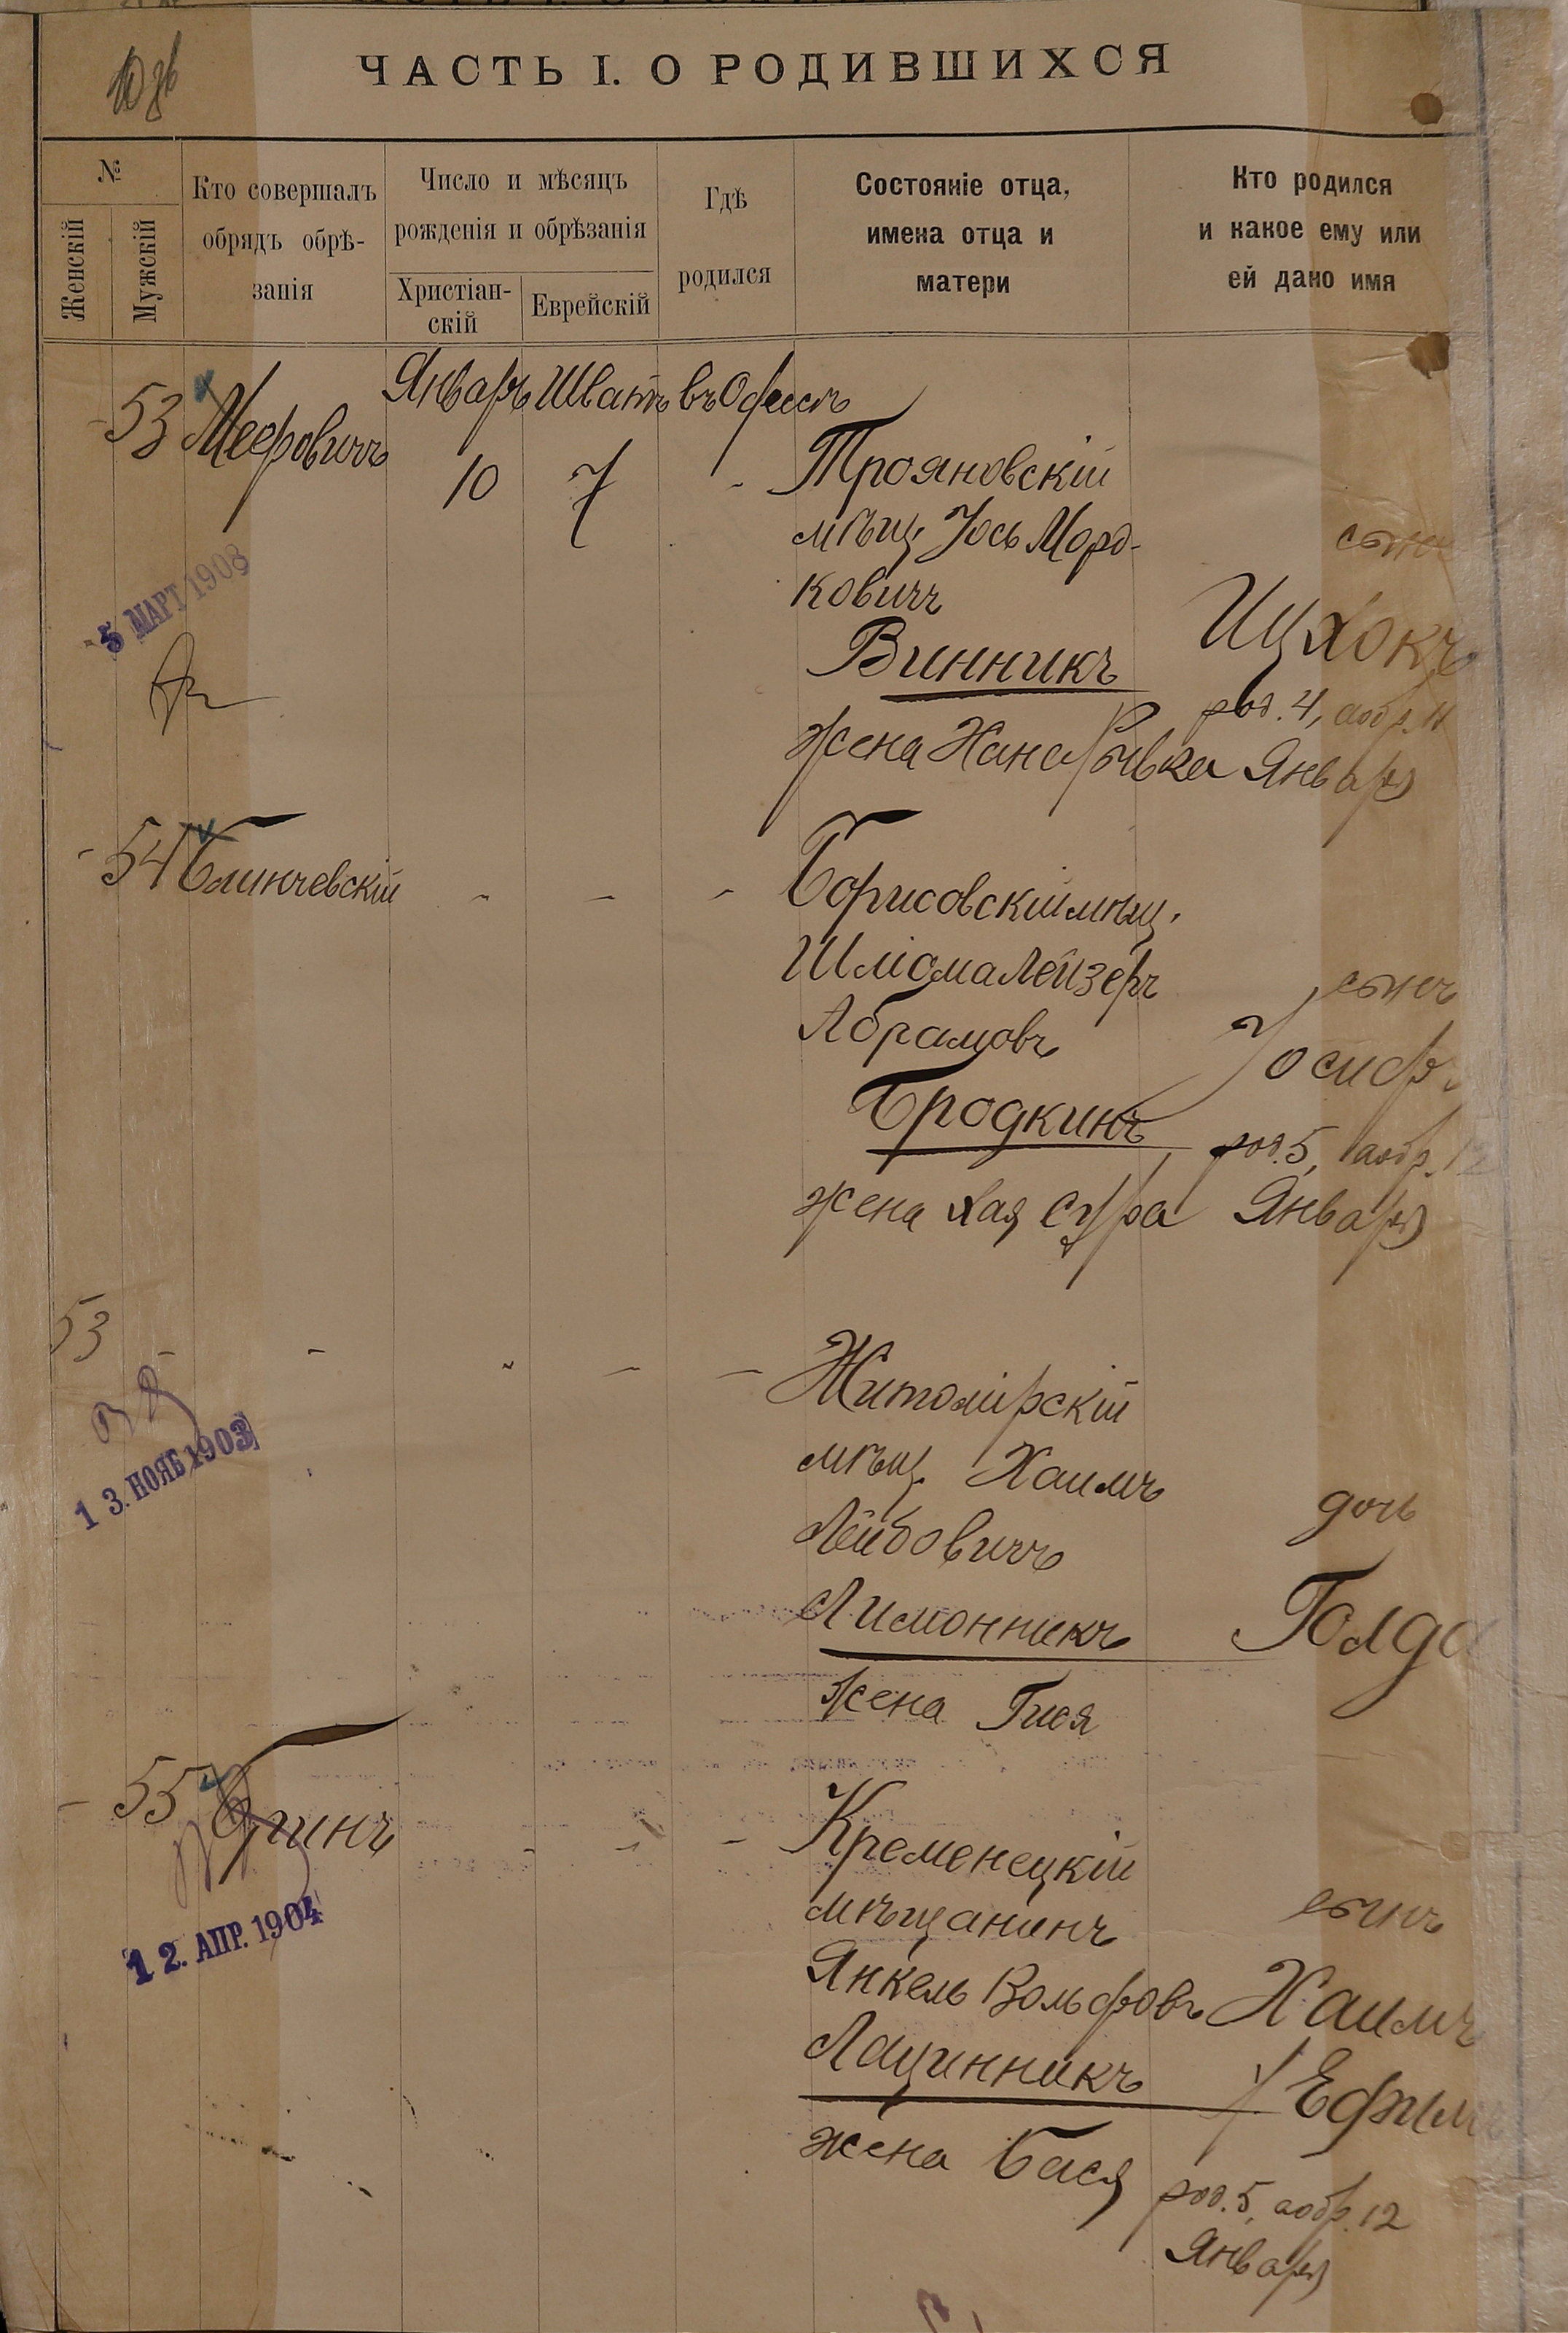 ЧАСТЬ I. О РОДИВШИХСЯ
№
Женскій
Мужскій
Кто совершалъ
обрядъ обрѣ-
занія
Число и мѣсяцъ
рожденія и обрѣзанія
Христіан-
скій
Еврейскій
Гдѣ
родился
Состояніе отца,
имена отца и
матери
Кто родился
и какое ему или
ей дано имя
Январь Шватъ въ Одессѣ
53 Мееровичъ
10 7 Трояновскій
мѣщ. Іось Морд-
ковичъ
сынъ
Винникъ
Ицхокъ
род. 4, а обр. 11
жена Хана Ривка Января
5 МАРТ 1908
54 Блинчевскій
Борисовскій мѣщ.
Шліома Лейзеръ
сынъ
Абрамовъ
Іосифъ
Бродкинъ
род. 5, а обр. 12
жена Хая Сура Января
53
Житомірскій
мѣщ. Хаимъ
дочь
Лейбовичъ
Лимонникъ
Голда
жена Гися
13. НОЯБ 1903
55
Кременецкій
мѣщанинъ
сынъ
Янкель Вольфовъ Хаимъ
Лацинникъ
Ефимъ
жена Бася
род. 5, а обр. 12
Января
12. АПР. 1904